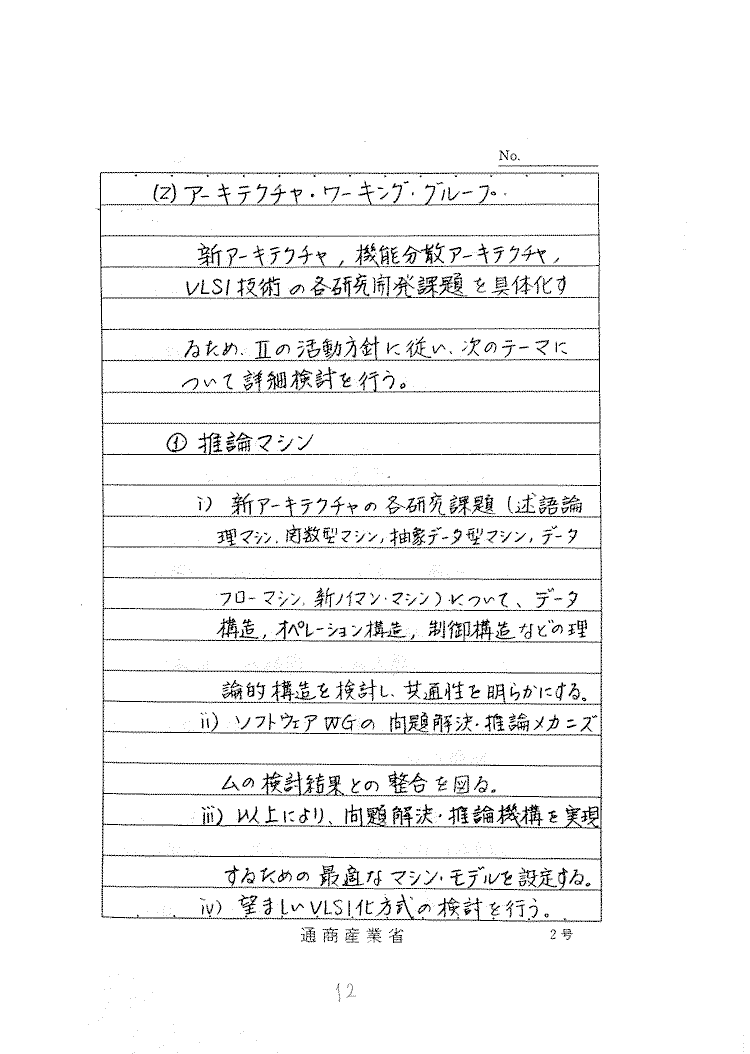 No.
(2) アーキテクチャ・ワーキング・グループ
新アーキテクチャ, 機能分散アーキテクチャ,
VLSI技術の各研究開発課題を具体化す
るため、Ⅱの活動方針に従い、次のテーマに
ついて詳細検討を行う。
① 推論マシン
i) 新アーキテクチャの各研究課題 (述語論
理マシン, 関数型マシン, 抽象データ型マシン, データ
フローマシン, 新ノイマン・マシン) について、データ
構造, オペレーション構造, 制御構造などの理
論的構造を検討し、共通性を明らかにする。
ii) ソフトウェアWGの 問題解決・推論メカニズ
ムの検討結果との整合を図る。
iii) 以上により、問題解決・推論機構を実現
するための最適なマシン・モデルを設定する。
iv) 望ましいVLSI化方式の検討を行う。
通商産業省
2号
12